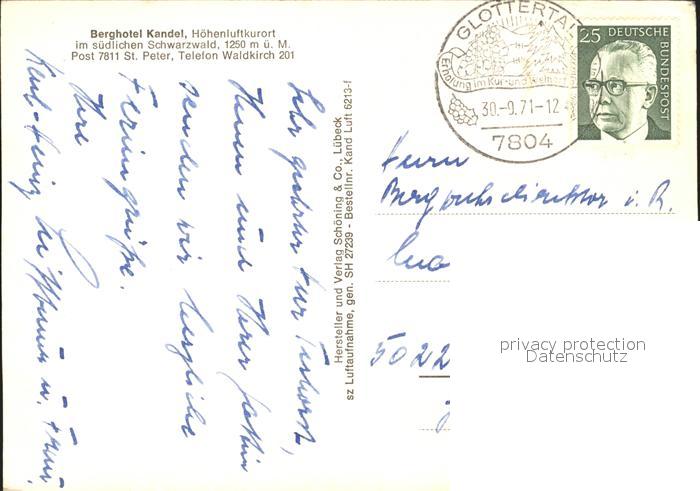 Berghotel Kandel, Höhenluftkurort
im südlichen Schwarzwald, 1250 m ü. M.
Post 7811 St. Peter, Telefon Waldkirch 201
Sehr geehrter Herr
Ihnen und Ihrer Gattin
senden wir herzliche
Feriengrüße.
Ihre
Karl-Heinz u. Frau.
Hersteller und Verlag Schöning & Co., Lübeck
sz Luftaufnahme, gen. SH 27239 - Bestellnr. Kand Luft 6213-f
GLOTTERTAL
Erholung im Kur- und
30.-9.71-12
7804
25 DEUTSCHE
BUNDESPOST
Herrn
i. R.
5022
privacy protection
Datenschutz